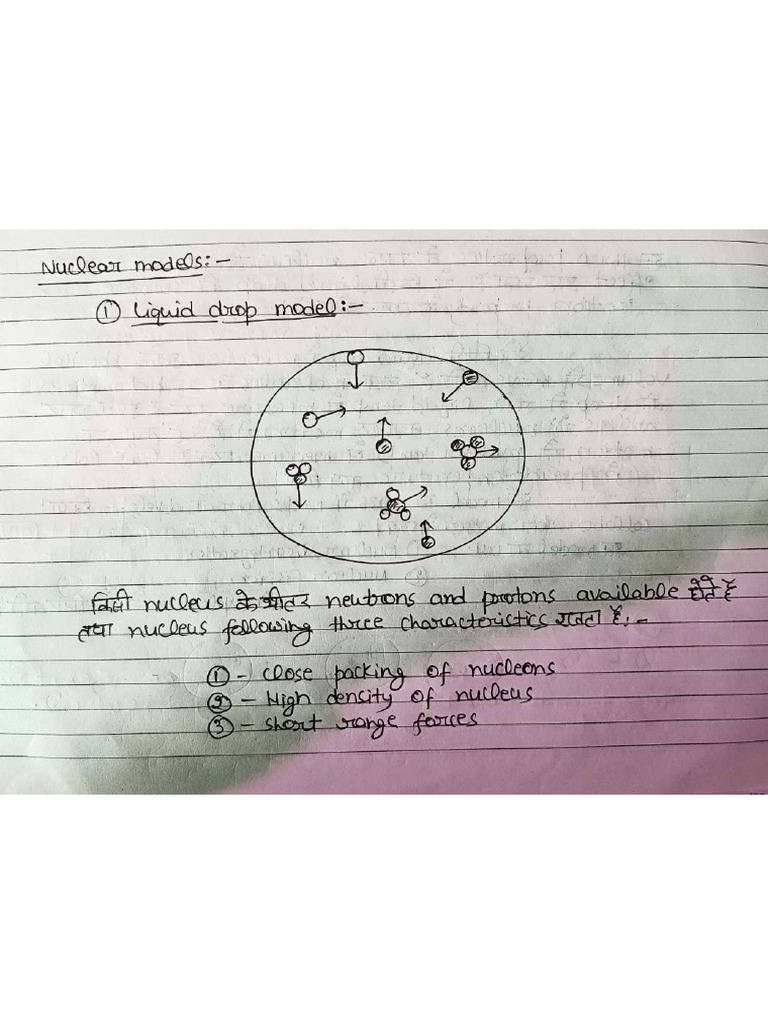 Nuclear models:-
① Liquid drop model:-
किसी nucleus के भीतर neutrons and protons available होते हैं
तथा nucleus following three characteristics रखता है।-
① - Close packing of nucleons
② - High density of nucleus
③ - Short range forces